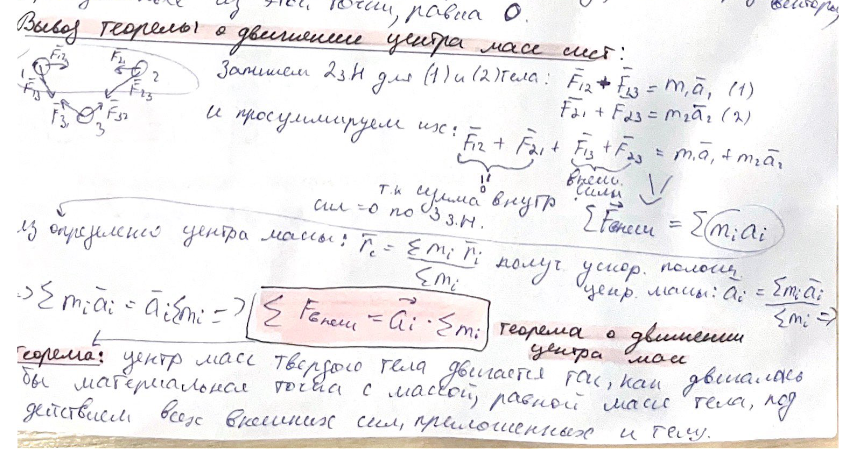 из этой точки, равна 0.
Вывод теоремы о движении центра масс сист:
F̄₁₂ F̄₂₁
1 2
F̄₁₃ F̄₂₃
F̄₃₁ F̄₃₂
3
Запишем 2зН для (1) и (2) тела: F̄₁₂ + F̄₁₃ = m₁ā₁ (1)
F̄₂₁ + F₂₃ = m₂ā₂ (2)
и просуммируем их: F̄₁₂ + F̄₂₁ + F̄₁₃ + F̄₂₃ = m₁ā₁ + m₂ā₂
0 внешн. силы
т.к сумма внутр
сил = 0 по 3 з.Н. ΣF⃗внешн = Σm̄ᵢaᵢ
Из определения центра массы: r̄c = Σmᵢr̄ᵢ / Σmᵢ получ ускор. полож
центр. массы: āᵢ = Σmᵢāᵢ / Σmᵢ =>
=> Σmᵢāᵢ = āᵢΣmᵢ => Σ Fвнешн = a⃗ᵢ · Σmᵢ теорема о движении
центра масс
Теорема: центр масс твердого тела двигается так, как двигалась
бы материальная точка с массой, равной массе тела, под
действием всех внешних сил, приложенных к телу.